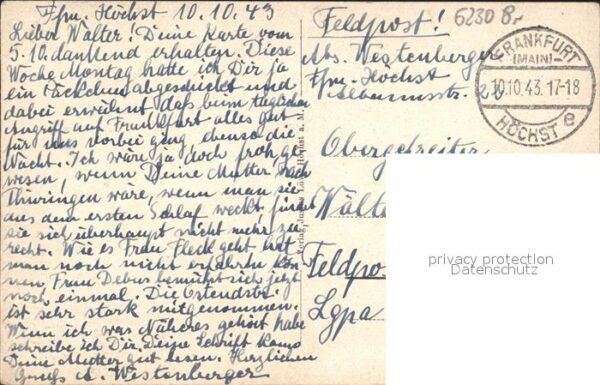 Ffm. Höchst 10.10.43
Lieber Walter! Deine Karte vom
5.10. dankend erhalten. Diese
Woche Montag hatte ich Dir ja
ein Päckchen abgeschickt und
dabei erwähnt daß beim täglichen
Angriff auf Frankfurt alles gut
für uns vorbei ging, ebenso die
Nacht. Ich wäre ja doch froh ge
wesen, wenn Deine Mutter nach
Thüringen wäre, wenn man sie
aus dem ersten Schlaf weckt, findet
sie sich überhaupt nicht mehr zu
recht. Wie es Frau Fleck geht hat
man noch nicht erfahren kön
nen, Frau Debus bemüht sich jetzt
noch einmal. Die Ostendstr.
ist sehr stark mitgenommen.
Wenn ich was Näheres gehört habe
schreibe ich Dir, Deine Schrift kann
Deine Mutter gut lesen. Herzlichen
Gruß A. Westenberger
Feldpost!
6230 Br
Abs. Westenberger
Ffm. Höchst
FRANKFURT
(MAIN)
10.10.43.17-18
HÖCHST e
Obergefreiter
Walte
Feldpos
Lgpa
privacy protection
Datenschutz